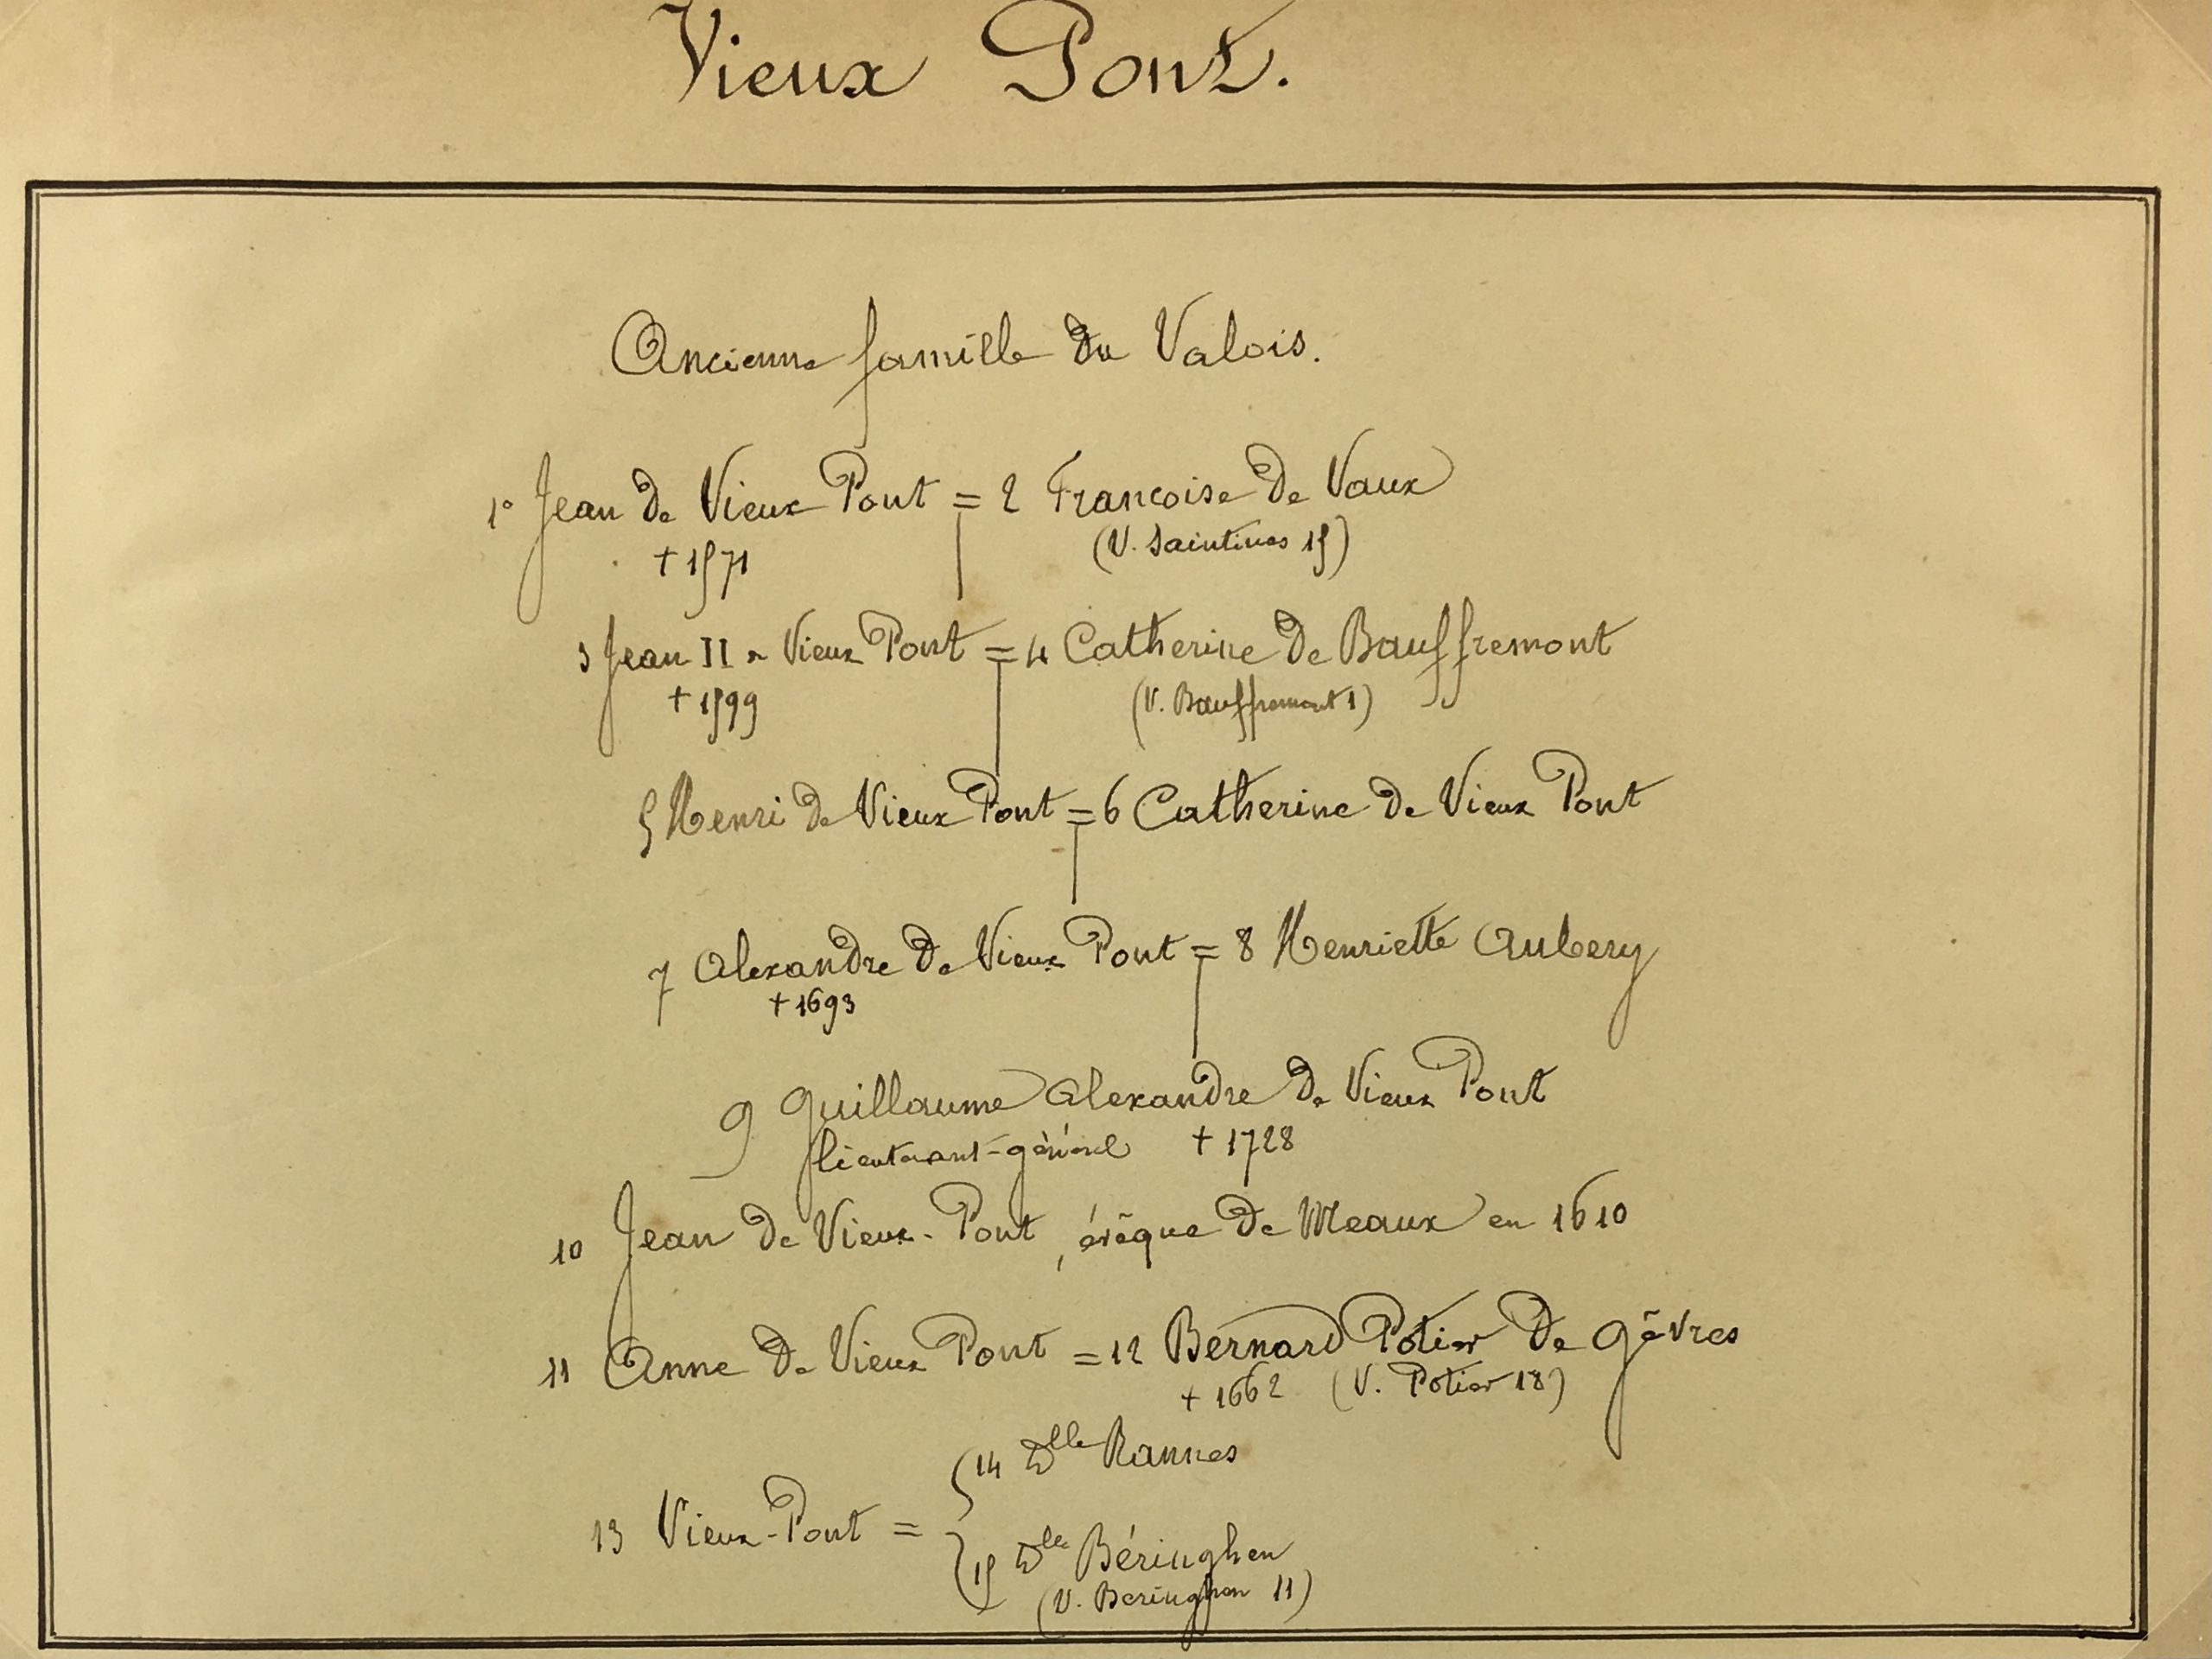 Vieux Pont.
Ancienne famille du Valois.
1° Jean de Vieux Pont = 2 Francoise de Vaux
+ 1571 (V. Saintines 15)
3 Jean II de Vieux Pont = 4 Catherine de Bauffremont
+ 1599 (V. Bauffremont 1)
5 Henri de Vieux Pont = 6 Catherine de Vieux Pont
7 Alexandre de Vieux Pont = 8 Henriette Aubery
+ 1693
9 Guillaume Alexandre de Vieux Pont
lieutenant-général + 1728
10 Jean de Vieux-Pont, évêque de Meaux en 1610
11 Anne de Vieux Pont = 12 Bernard Potier de Gêvres
+ 1662 (V. Potier 18)
14 Dlle Rannes
13 Vieux-Pont =
15 Dlle Béringhen
(V. Beringhen 11)